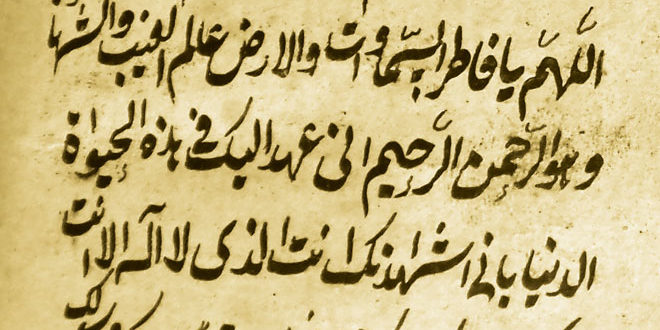 اللّهمّ يا فاطر السّماوات والارض عالم الغيب والشهادة
وهو الرّحمن الرّحيم انى عهد اليك فى هذه الحيواة
الدنيا بانى اشهد انك انت الذى لا اله الا انت